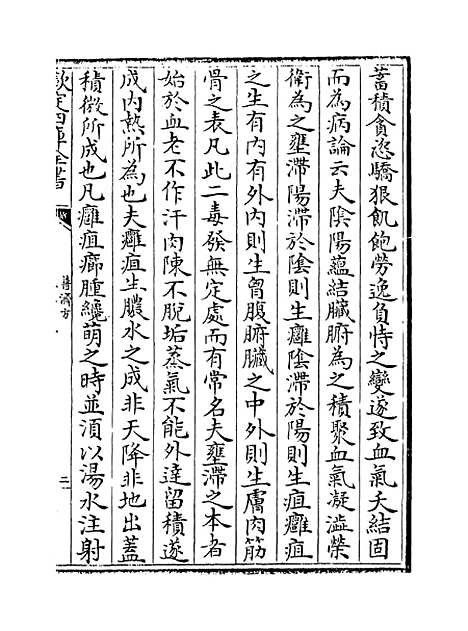 蓄積貪恣驕狠飢飽勞逸負恃之變遂致血氣夭結固
而為病論云夫陰陽蘊結臟腑為之積聚血氣凝溢榮
衛為之壅滯陽滯於陰則生癰陰滯於陽則生疽癰疽
之生有内有外内則生胷腹腑臟之中外則生膚肉筋
骨之表凡此二毒發無定處而有常名夫壅滯之本者
始於血老不作汗肉陳不脫垢蒸氣不能外達留積遂
成内熱所為也夫癰疽生膿水之成非天降非地出蓋
積微所成也凡癰疽癤腫纔萌之時並須以湯水注射
欽定四庫全書
普濟方
二